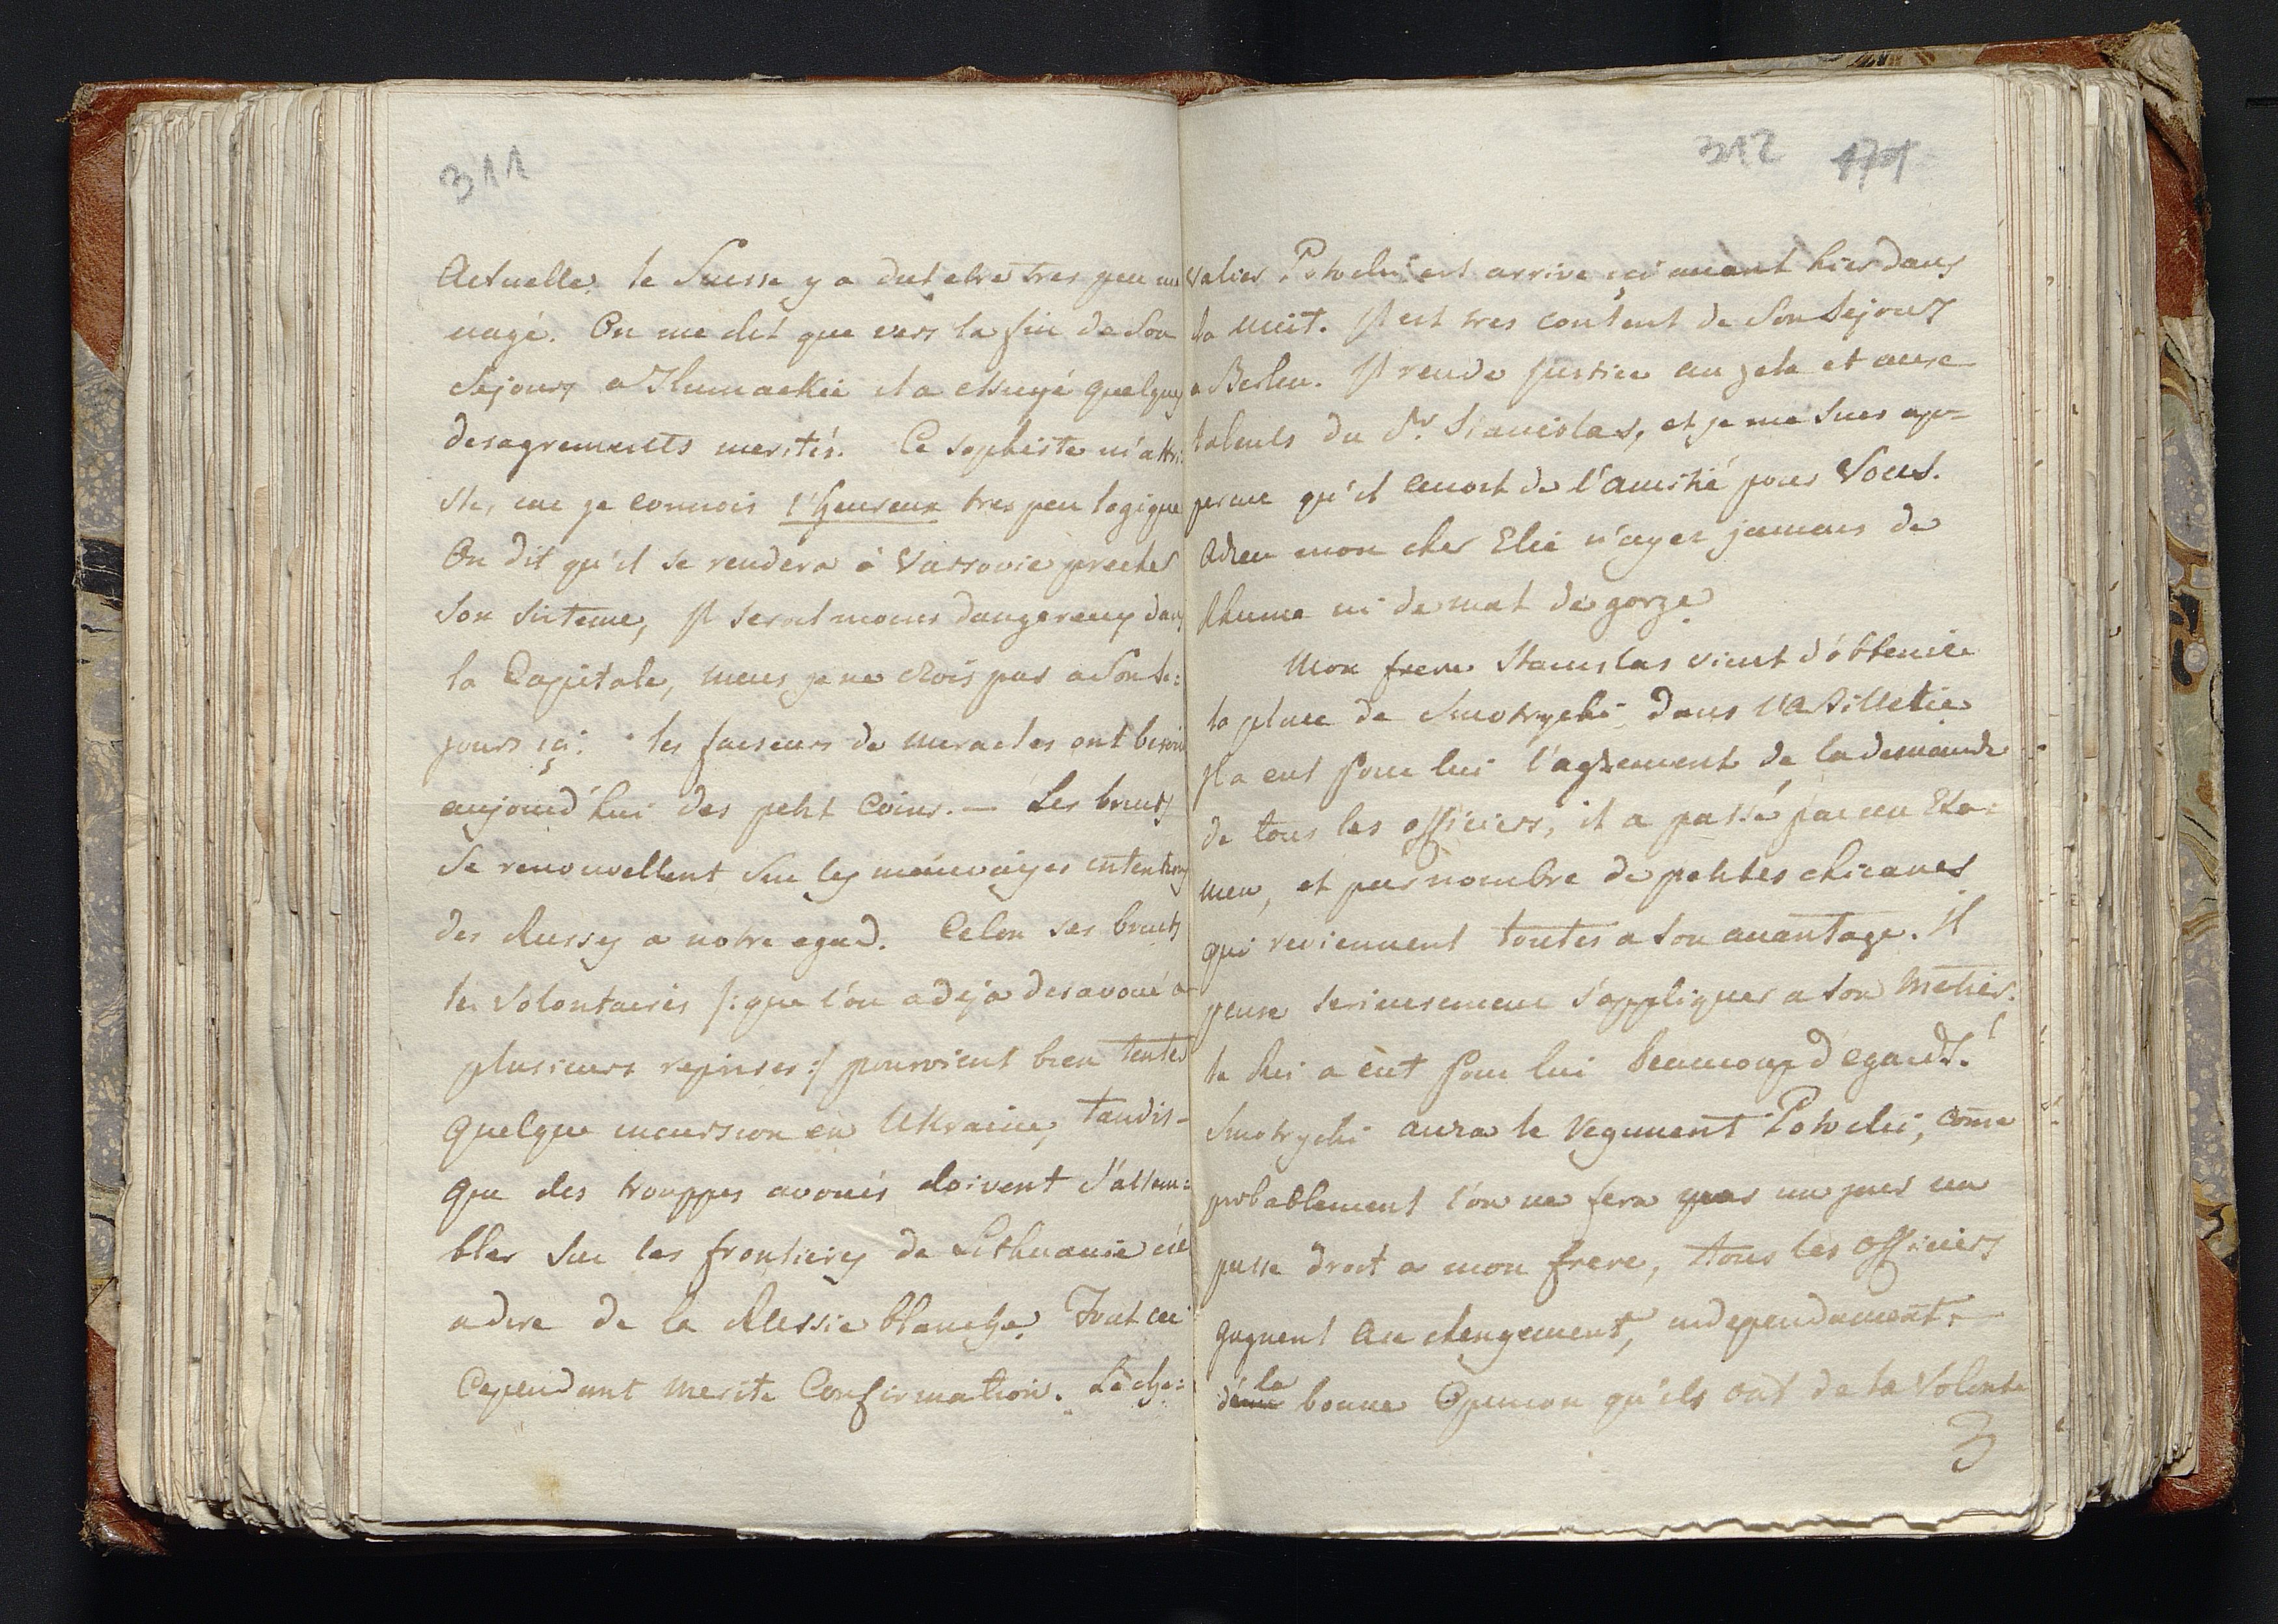 311
Actuelle. le Suisse y a dut etre tres peu me
nagé. On me dit que vers la fin de Son
Sejours a il a essuyé quelques
desagrements merités. Ce sophiste m'attri:
ste, car je connois l'heureux tres peu logique
On dit qu'il se rendera à Varsovie precher
Son Sisteme, Il serat moins dangereux dans
la Capitale, mais je ne crois pas a Son Se:
jours içi. les faiseurs de miracles ont besoin
aujourd'hui des petit Coins. — Les bruits
Se renouvellent Sur les mauvaises intentions
des Russes a notre egard. Celon ses bruits
les Volontaires /: que l'on a deja desavoué a
plusieurs reprises :/ pourroient bien tenter
quelque incursion en Ukraine, tandis-
que des trouppes avoués doivent S'assem:
bler Sur les frontieres de Lithuanie c'é
a dire de la Russie blanche. Tout ceci
Cependant merite Confirmation. Le che:
312 171
valier Potocki est arrive içi avant hier dans
la nuit. Il est tres content de Son Sejours
a Berlin. Il rende justice au zele et aux
talents du Sr. Stanislas, et je me suis ap=
percue qu'il avoit de l'amitié pour Vous.
Adieu mon cher Elie n'ayez jamais de
Rhume ni de mal de gorge
Mon frere Stanislas vient d'obtenire
la place de Smotrycki dans l'Artillerie
Il a eut pour lui l'agrement de la demande
de tous les officiers, il a passé par un Exa:
men, et par nombre de petites chicanes
qui reviennent toutes a Son avantage. Il
pense Serieusement S'appliquer a Son Metier.
le Roi a eut pour lui beaucoup d'egards.
Smotrycki aura le Regiment Potocki, come
probablement l'on ne fera pas un
passe droit a mon frere, tous les officiers
gagnent Au changement, independament
de la bonne Opinion qu'ils ont de la Volonte
3